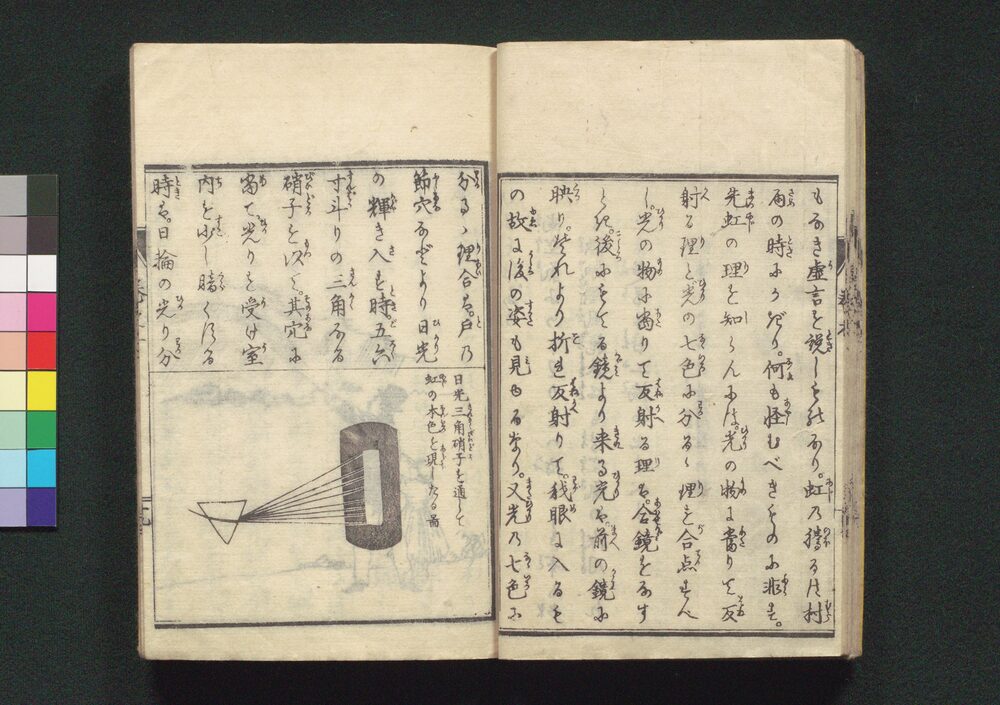 もなき虚言を説しものなり。虹の騰るは村
雨の時にかぎり。何も怪むべきものに非ず。
先虹の理を知らんには。光の物に當りて反
射る理と光の七色に分るゝ理を合点すべ
し。光の物に當りて反射る理は。合鏡をなす
とき。後にある鏡より来る光は。前の鏡に
映り。それより折れ反射りて。我眼に入るも
の故に後の姿も見ゆるなり。又光乃七色に
分るゝ理合は。戸乃
節穴などより日光
の輝き入る時五六
寸斗りの三角なる
硝子を以て。其穴に
當て光りを受け室
内を少し暗くする
時は。日輪の光り分
日光三角硝子を通して
虹の本色を現したる圖